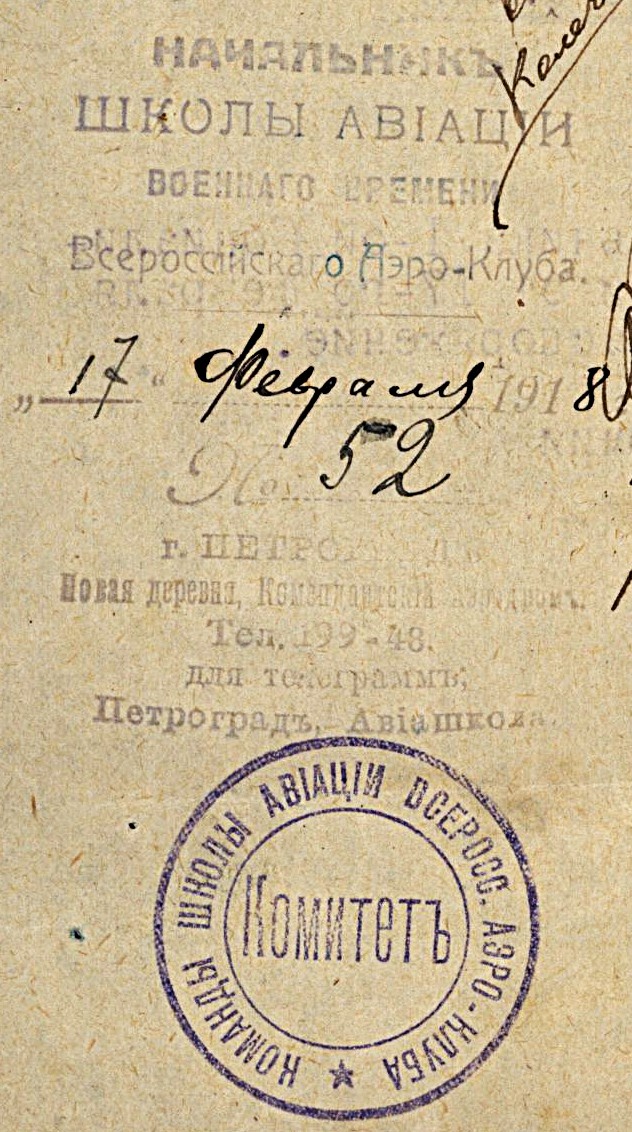 НАЧАЛЬНИКЪ
ШКОЛЫ АВІАЦІИ
ВОЕННАГО ВРЕМЕНИ
Всероссійскаго Аэро-Клуба.
„17“ Февраля 1918
No 52
г. ПЕТРОГРАДЪ
Новая деревня, Комендантскій Аэродромъ.
Тел. 199-48.
для телеграммъ;
Петроградъ, Авіашкола.
КОМАНДЫ ШКОЛЫ АВІАЦІИ ВСЕРОСС. АЭРО-КЛУБА
Комитетъ